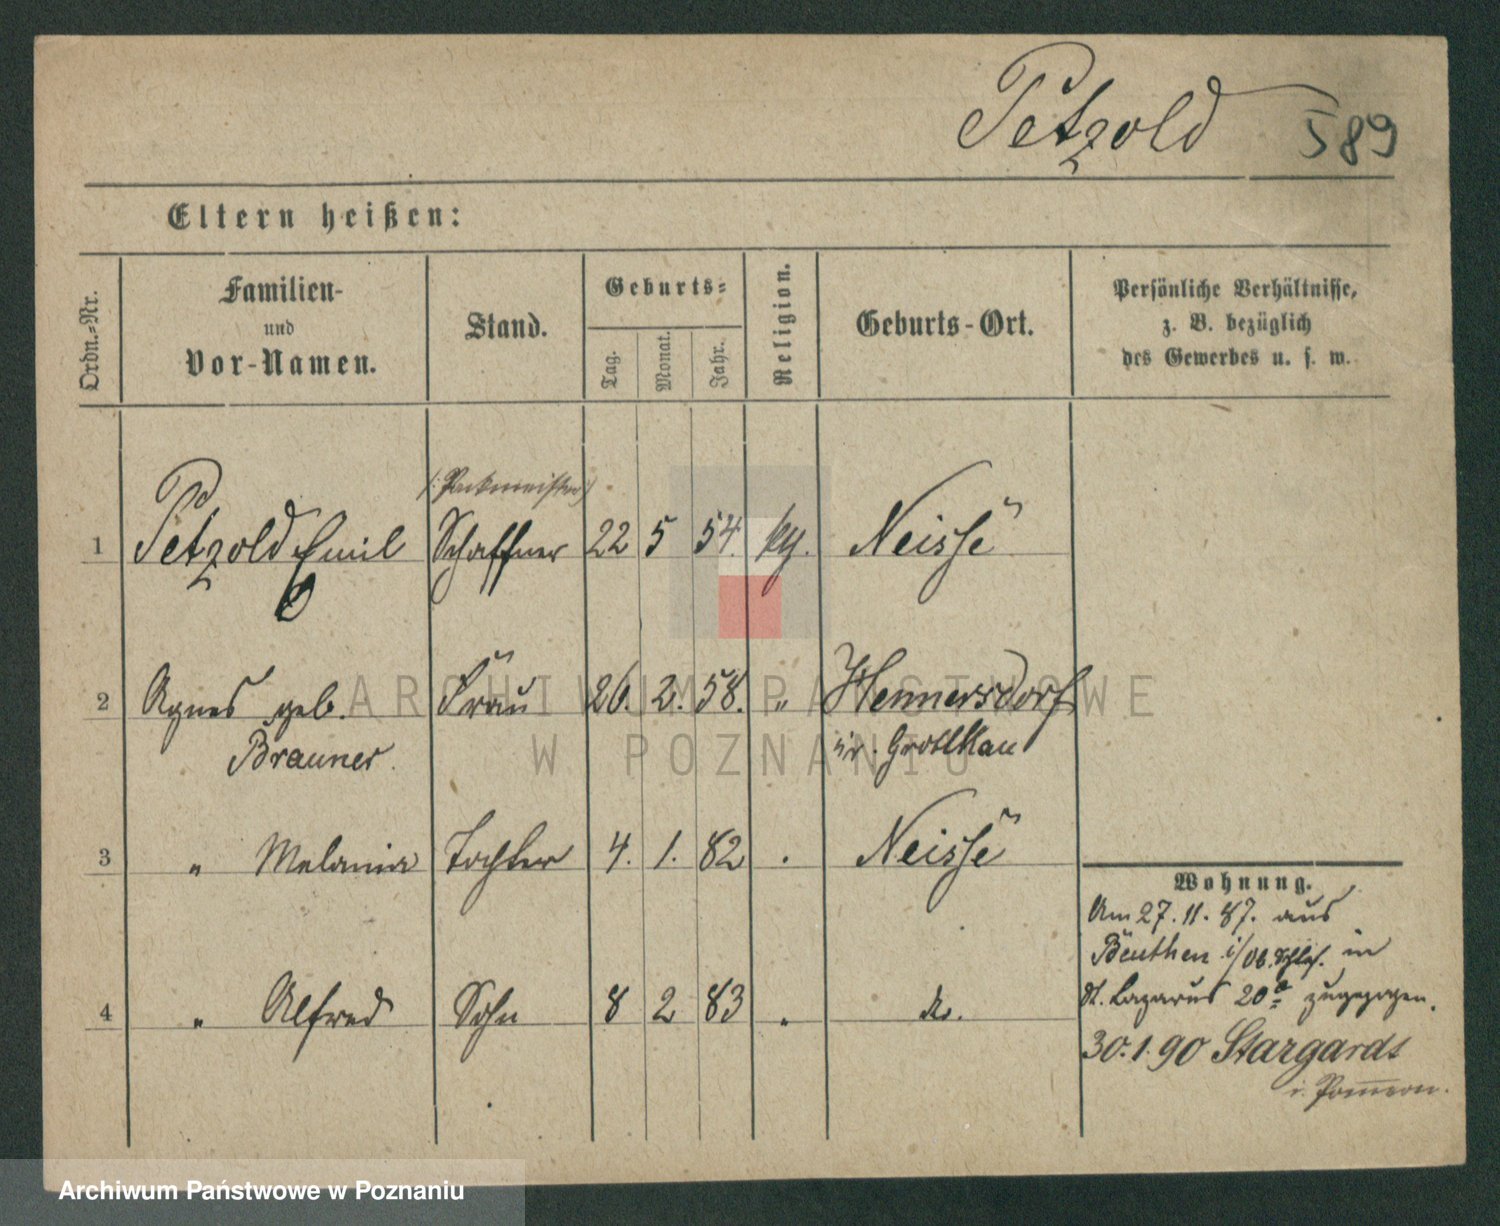 Petzold 589
Eltern heißen:
Ordn.-Nr.
Familien-
und
Vor-Namen.
Stand.
Geburts-
Tag.
Monat.
Jahr.
Religion.
Geburts-Ort.
Persönliche Verhältnisse,
z. B. bezüglich
des Gewerbes u. s. w.
(: Packmeister :)
1 Petzold Emil Schaffner 22 5 54. kg. Neisse
2 Agnes geb. Frau 26. 2. 58. " Hennersdorf
Brauner. Kr. Grottkau
3 " Melania Tochter 4. 1. 82 . Neisse
4 " Alfred Sohn 8 2 83 " do.
Wohnung.
Am 27. 11. 87. aus
Beuthen i/Ob. Schles. in
St. Lazarus 20a zugezogen.
30.1.90 Stargardt
i. Pommern.
ARCHIWUM PAŃSTWOWE
W POZNANIU
Archiwum Państwowe w Poznaniu